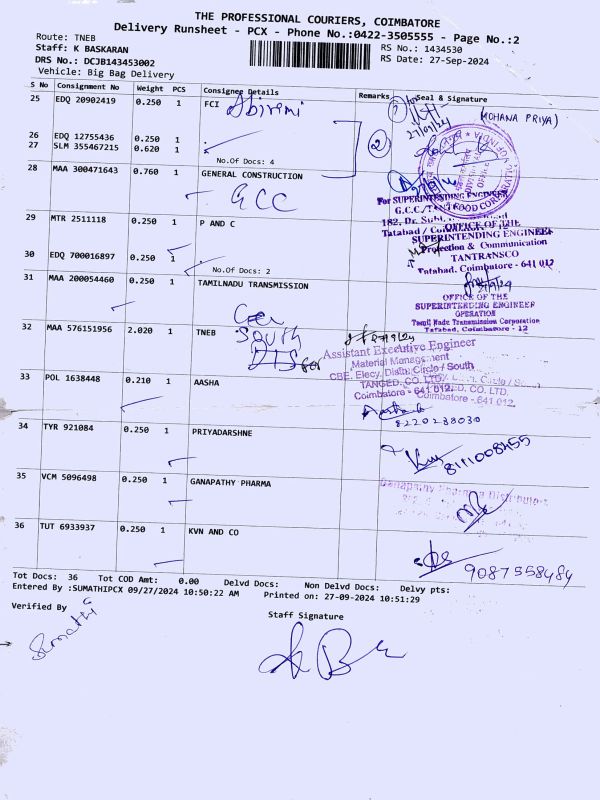 THE PROFESSIONAL COURIERS, COIMBATORE
Delivery Runsheet - PCX - Phone No.:0422-3505555 - Page No.:2
Route: TNEB
Staff: K BASKARAN
RS No.: 1434530
DRS No.: DCJB143453002
RS Date: 27-Sep-2024
Vehicle: Big Bag Delivery
S No Consignment No Weight PCS Consignee Details Remarks Seal & Signature
25 EDQ 20902419 0.250 1 FCI Abirami
1 MOHANA PRIYA)
27/09/24
26 EDQ 12755436 0.250 1
27 SLM 355467215 0.620 1
2
No.Of Docs: 4
28 MAA 300471643 0.760 1 GENERAL CONSTRUCTION
GCC
For SUPERINTENDING ENGINEER
29 MTR 2511118 0.250 1 P AND C
OFFICE OF THE
SUPERINTENDING ENGINEER
Protection & Communication
TANTRANSCO
Tatabad, Coimbatore - 641 012
30 EDQ 700016897 0.250 1
No.Of Docs: 2
31 MAA 200054460 0.250 1 TAMILNADU TRANSMISSION
OFFICE OF THE
SUPERINTENDING ENGINEER
OPERATION
Tamil Nadu Transmission Corporation
Tatabad, Coimbatore - 12
32 MAA 576151956 2.020 1 TNEB
South
Assistant Executive Engineer
Material Management
CBE. Elecy. Distn. Circle / South
TANGED. CO. LTD.
Coimbatore - 641 012.
33 POL 1638448 0.210 1 AASHA
8220238030
34 TYR 921084 0.250 1 PRIYADARSHNE
8111008455
35 VCM 5096498 0.250 1 GANAPATHY PHARMA
36 TUT 6933937 0.250 1 KVN AND CO
9087558484
Tot Docs: 36 Tot COD Amt: 0.00 Delvd Docs: Non Delvd Docs: Delvy pts:
Entered By :SUMATHIPCX 09/27/2024 10:50:22 AM Printed on: 27-09-2024 10:51:29
Verified By
Staff Signature
Sumathi G